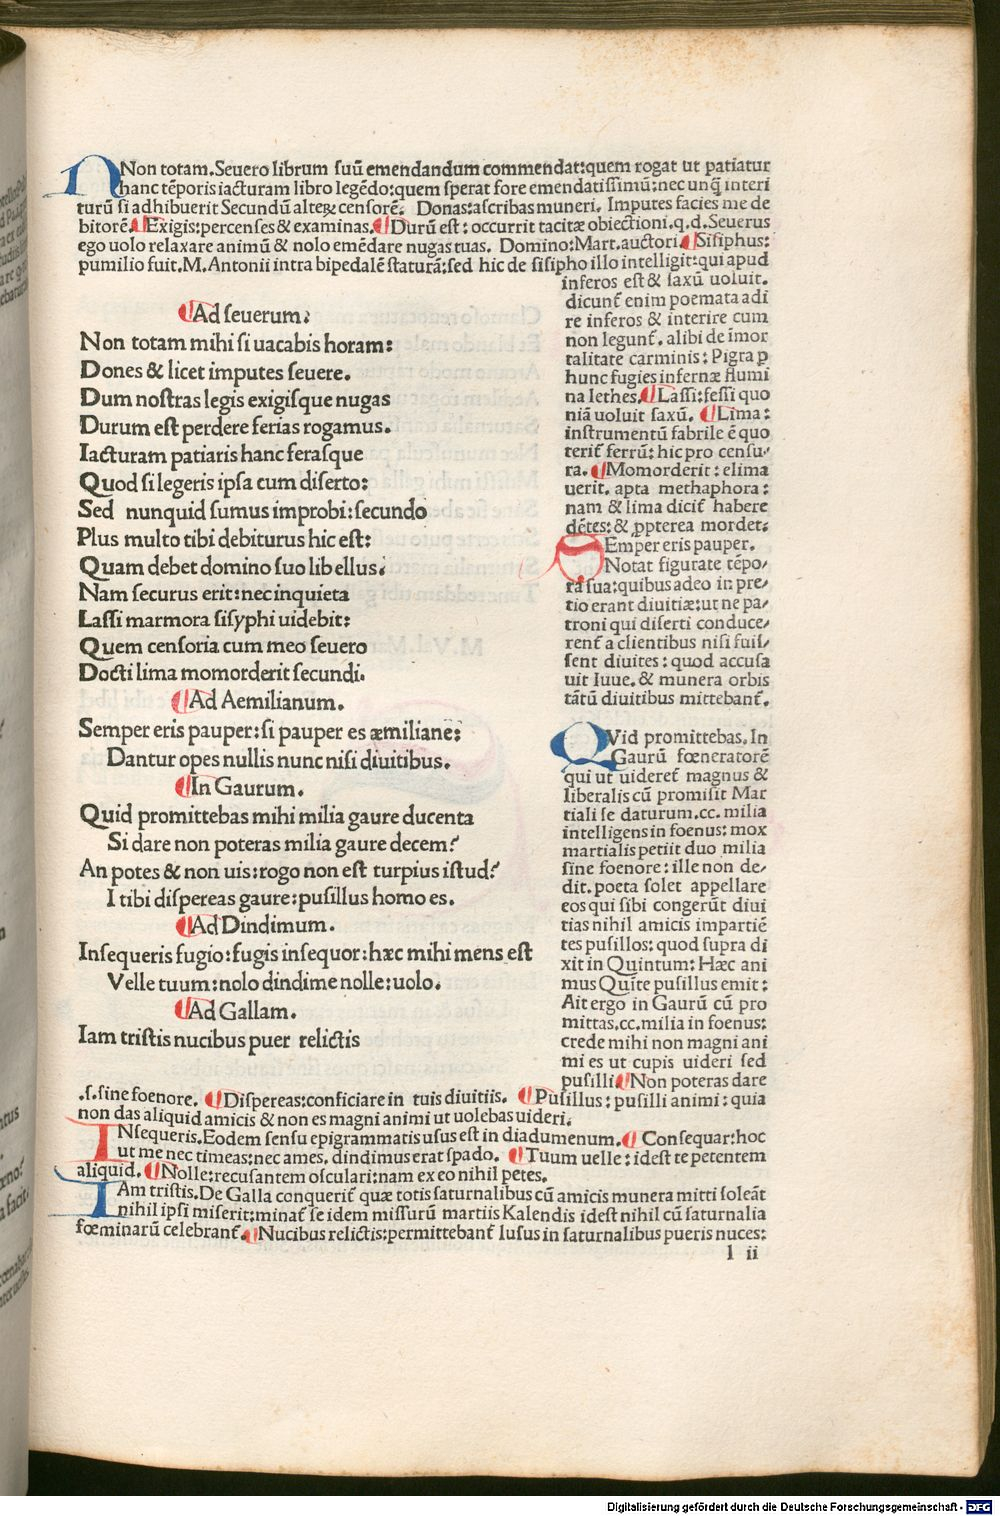 Non totam. Seuero librum suū emendandum commendat: quem rogat ut patiatur
hanc tēporis iacturam libro legēdo: quem sperat fore emendatissimū: nec unq̄ interi
turū si adhibuerit Secundū alteꝝ censorē. Donas: ascribas muneri. Imputes facies me de
bitorē. ¶ Exigis: percenses & examinas. ¶ Durū est: occurrit tacitæ obiectioni. q.d. Seuerus
ego uolo relaxare animū & nolo emēdare nugas tuas. Domino: Mart. auctori. ¶ Sisiphus:
pumilio fuit. M. Antonii intra bipedalē staturā: sed hic de sisipho illo intelligit: qui apud
inferos est & saxū uoluit.
dicunt̄ enim poemata adi
re inferos & interire cum
non legunt̄. alibi de īmor
talitate carminis: Pigra ꝑ
hunc fugies infernæ flumi
na lethes. ¶ Lassi: fessi quo
niā uoluit saxū. ¶ Lima:
instrumentū fabrile ē quo
terit̄ ferrū: hic pro censu-
ra. ¶ Momorderit: elima
uerit. apta methaphora:
nam & lima dicit̄ habere
dētes: & ꝓpterea mordet.
¶ Ad seuerum.
Non totam mihi si uacabis horam:
Dones & licet imputes seuere.
Dum nostras legis exigisque nugas
Durum est perdere ferias rogamus.
Iacturam patiaris hanc ferasque
Quod si legeris ipsa cum diserto:
Sed nunquid sumus improbi: secundo
Plus multo tibi debiturus hic est:
Quam debet domino suo libellus.
Nam securus erit: nec inquieta
Lassi marmora sisyphi uidebit:
Quem censoria cum meo seuero
Docti lima momorderit secundi.
¶ Ad Aemilianum.
Semper eris pauper: si pauper es æmiliane:
Dantur opes nullis nunc nisi diuitibus.
¶ In Gaurum.
Quid promittebas mihi milia gaure ducenta
Si dare non poteras milia gaure decem?
An potes & non uis: rogo non est turpius istud?
I tibi dispereas gaure: pusillus homo es.
¶ Ad Dindimum.
Insequeris fugio: fugis insequor: hæc mihi mens est
Velle tuum: nolo dindime nolle: uolo.
¶ Ad Gallam.
Iam tristis nucibus puer relictis
SEmper eris pauper.
Notat figurate tēpo-
ra sua: quibus adeo in pre-
tio erant diuitiæ: ut ne pa-
troni qui diserti conduce-
rent̄ a clientibus nisi fuis-
sent diuites: quod accusa
uit Iuue. & munera orbis
tātū diuitibus mittebant̄.
QVid promittebas. In
Gaurū fœneratorē
qui ut uideret̄ magnus &
liberalis cū promisit Mar
tiali se daturum .cc. milia
intelligens in foenus: mox
martialis petiit duo milia
sine foenore: ille non de-
dit. poeta solet appellare
eos qui sibi congerūt diui
tias nihil amicis impartiē
tes pusillos: quod supra di
xit in Quintum: Hæc ani
mus Quīte pusillus emit:
Ait ergo in Gaurū cū pro
mittas .cc. milia in foenus:
crede mihi non magni ani
mi es ut cupis uideri sed
pusilli. ¶ Non poteras dare
.s. sine foenore. ¶ Dispereas: conficiare in tuis diuitiis. ¶ Pusillus: pusilli animi: quia
non das aliquid amicis & non es magni animi ut uolebas uideri.
INsequeris. Eodem sensu epigrammatis usus est in diadumenum. ¶ Consequar: hoc
ut me nec timeas: nec ames. dindimus erat spado. ¶ Tuum uelle: idest te petentem
aliquid. ¶ Nolle: recusantem osculari: nam ex eo nihil petes.
IAm tristis. De Galla conquerit̄ quæ totis saturnalibus cū amicis munera mitti soleāt
nihil ipsi miserit: minat̄ se idem missurū martiis Kalendis idest nihil cū saturnalia
fœminarū celebrant̄. ¶ Nucibus relictis: permittebant̄ lusus in saturnalibus pueris nuces:
l ii
Digitalisierung gefördert durch die Deutsche Forschungsgemeinschaft - DFG